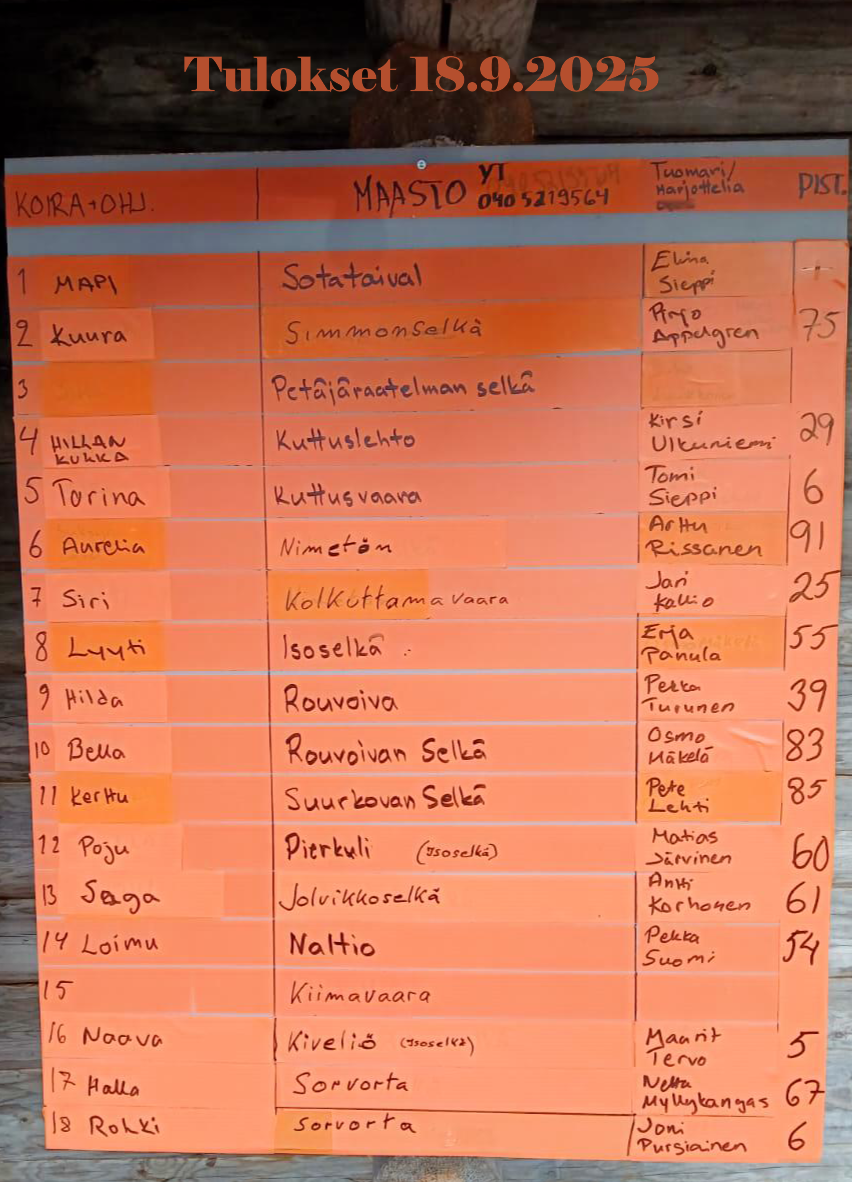 Tulokset 18.9.2025
KOIRA+OHJ. MAASTO YT 040 5219564 Tuomari/ Harjottelia PIST.
1 MAPI Sotataival Elina Sieppi +
2 Kuura Simmonselkä Pirjo Appelgren 75
3 Petäjäraatelman selkä
4 HILLAN KUKKA Kuttuslehto Kirsi Ulkuniemi 29
5 Torina Kuttusvaara Tomi Sieppi 6
6 Aurelia Nimetön Arttu Rissanen 91
7 Siri Kolkuttamavaara Jari Kallio 25
8 Lyyti Isoselkä Erja Panula 55
9 Hilda Rouvoiva Pekka Turunen 39
10 Bella Rouvoivan Selkä Osmo Mäkelä 83
11 Kerttu Suurkovan Selkä Pete Lehti 85
12 Poju Pierkuli (Isoselkä) Matias Järvinen 60
13 Saga Jolvikkoselkä Antti Korhonen 61
14 Loimu Naltio Pekka Suomi 54
15 Kiimavaara
16 Naava Kiveliö (Isoselkä) Maarit Tervo 5
17 Halla Sorvorta Netta Myllykangas 67
18 Rohki Sorvorta Joni Pursiainen 6